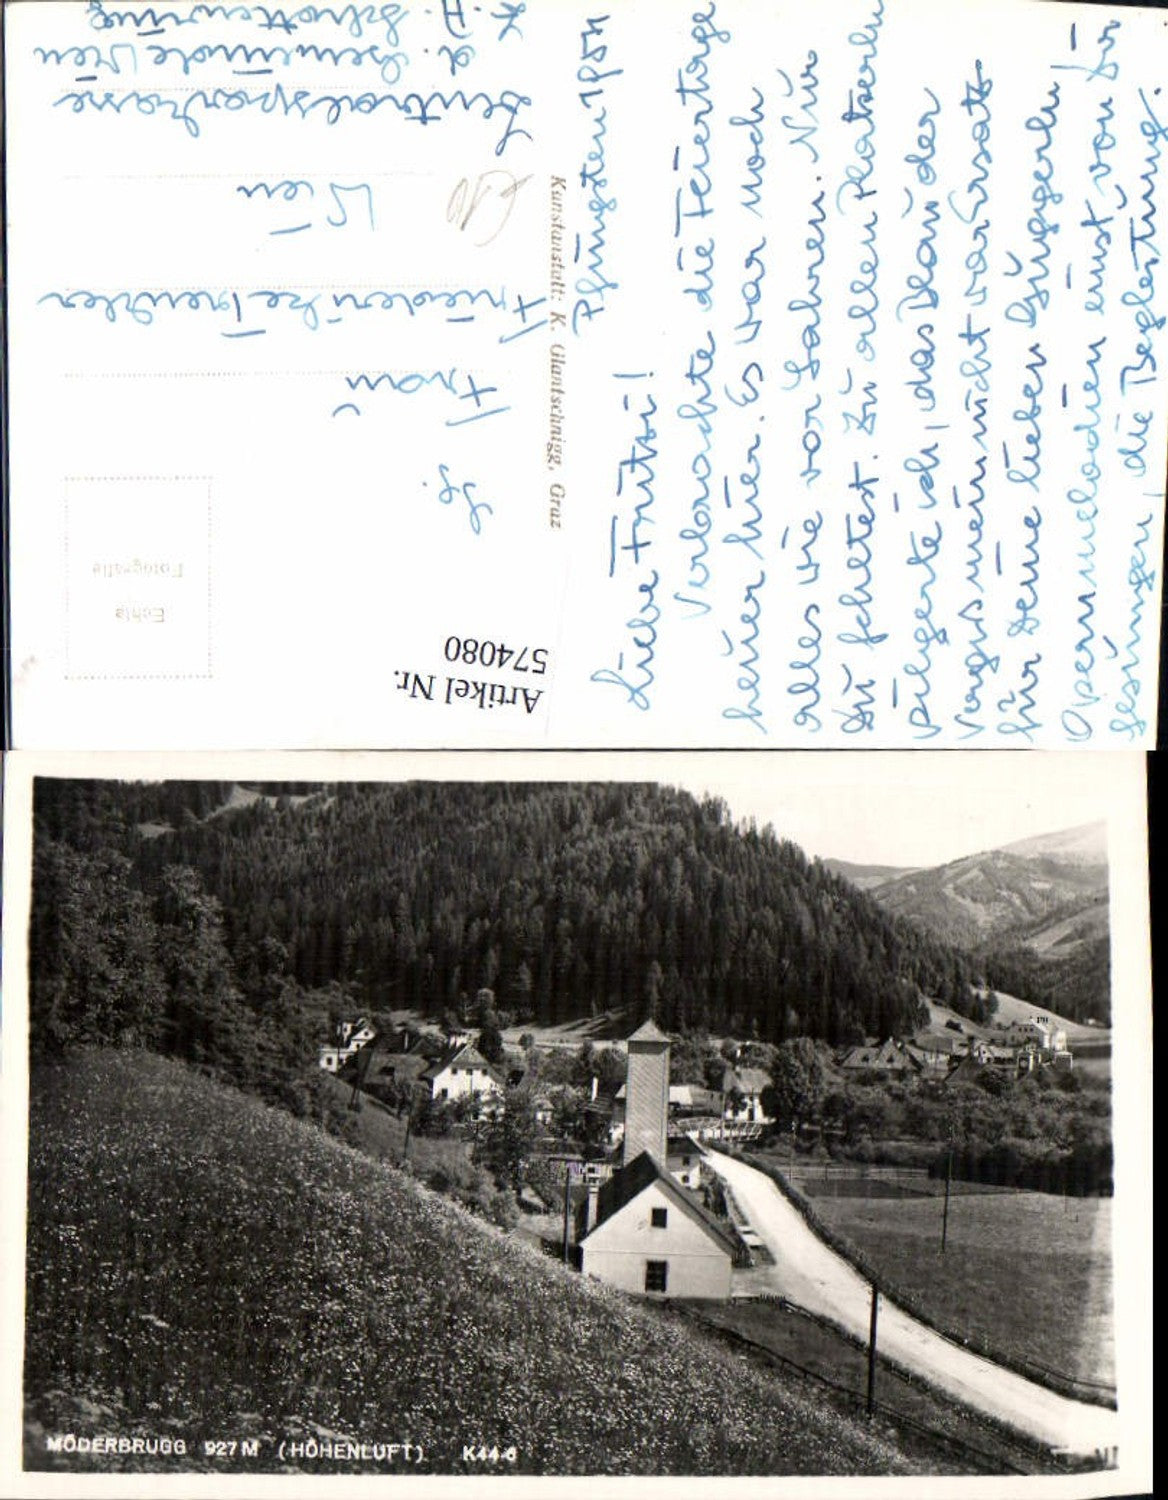 Pfingsten 1954
Liebe Fritzi!
Verbrachte die Feiertage
heuer hier. Es war noch
alles wie vor Jahren. Nur
Du fehltest. Zu allen Platzerln
pilgerte ich, das Blau der
Vergissmeinnicht war Ersatz
für Deine lieben Guggerln!
Opernmelodien einst von Dir
gesungen, die Begleitung.
Kunstanstalt: K. Glantschnigg, Graz
Echte
Fotografie
Frau
Friederike
Wien
Zentralsparkasse
d. Gemeinde Wien
Schottenring
Artikel Nr.
574080
MÖDERBRUGG 927 M (HÖHENLUFT) K44-6